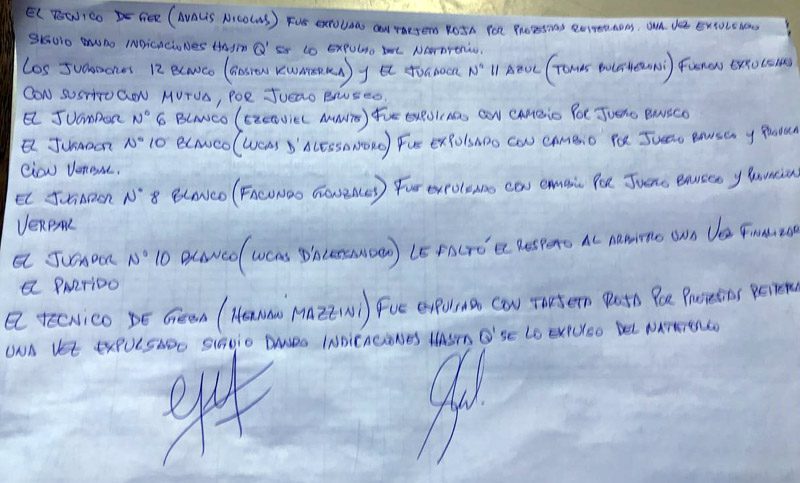 EL TECNICO DE GER (AVALIS NICOLAS) FUE EXPULSADO CON TARJETA ROJA POR PROTESTAS REITERADAS. UNA VEZ EXPULSADO
SIGUIO DANDO INDICACIONES HASTA Q' SE LO EXPULSO DEL NATATORIO.
LOS JUGADORES 12 BLANCO (GASTON KWATERKA) Y EL JUGADOR Nº 11 AZUL (TOMAS BULGHERONI) FUERON EXPULSADO
CON SUSTITUCION MUTUA, POR JUEGO BRUSCO.
EL JUGADOR Nº 6 BLANCO (EZEQUIEL) FUE EXPULSADO CON CAMBIO POR JUEGO BRUSCO
EL JUGADOR Nº 10 BLANCO (LUCAS D'ALESSANDRO) FUE EXPULSADO CON CAMBIO POR JUEGO BRUSCO Y PROVOCA
CION VERBAL.
EL JUGADOR Nº 8 BLANCO (FACUNDO GONZALES) FUE EXPULSADO CON CAMBIO POR JUEGO BRUSCO Y
VERBAR
EL JUGADOR Nº 10 BLANCO (LUCAS D'ALESSANDRO) LE FALTÓ EL RESPETO AL ARBITRO UNA VEZ FINALIZAR
EL PARTIDO
EL TECNICO DE GEBA (HERNAN MAZZINI) FUE EXPULSADO CON TARJETA ROJA POR PROTESTAS REITERA
UNA VEZ EXPULSADO SIGUIO DANDO INDICACIONES HASTA Q' SE LO EXPULSO DEL NATATORIO